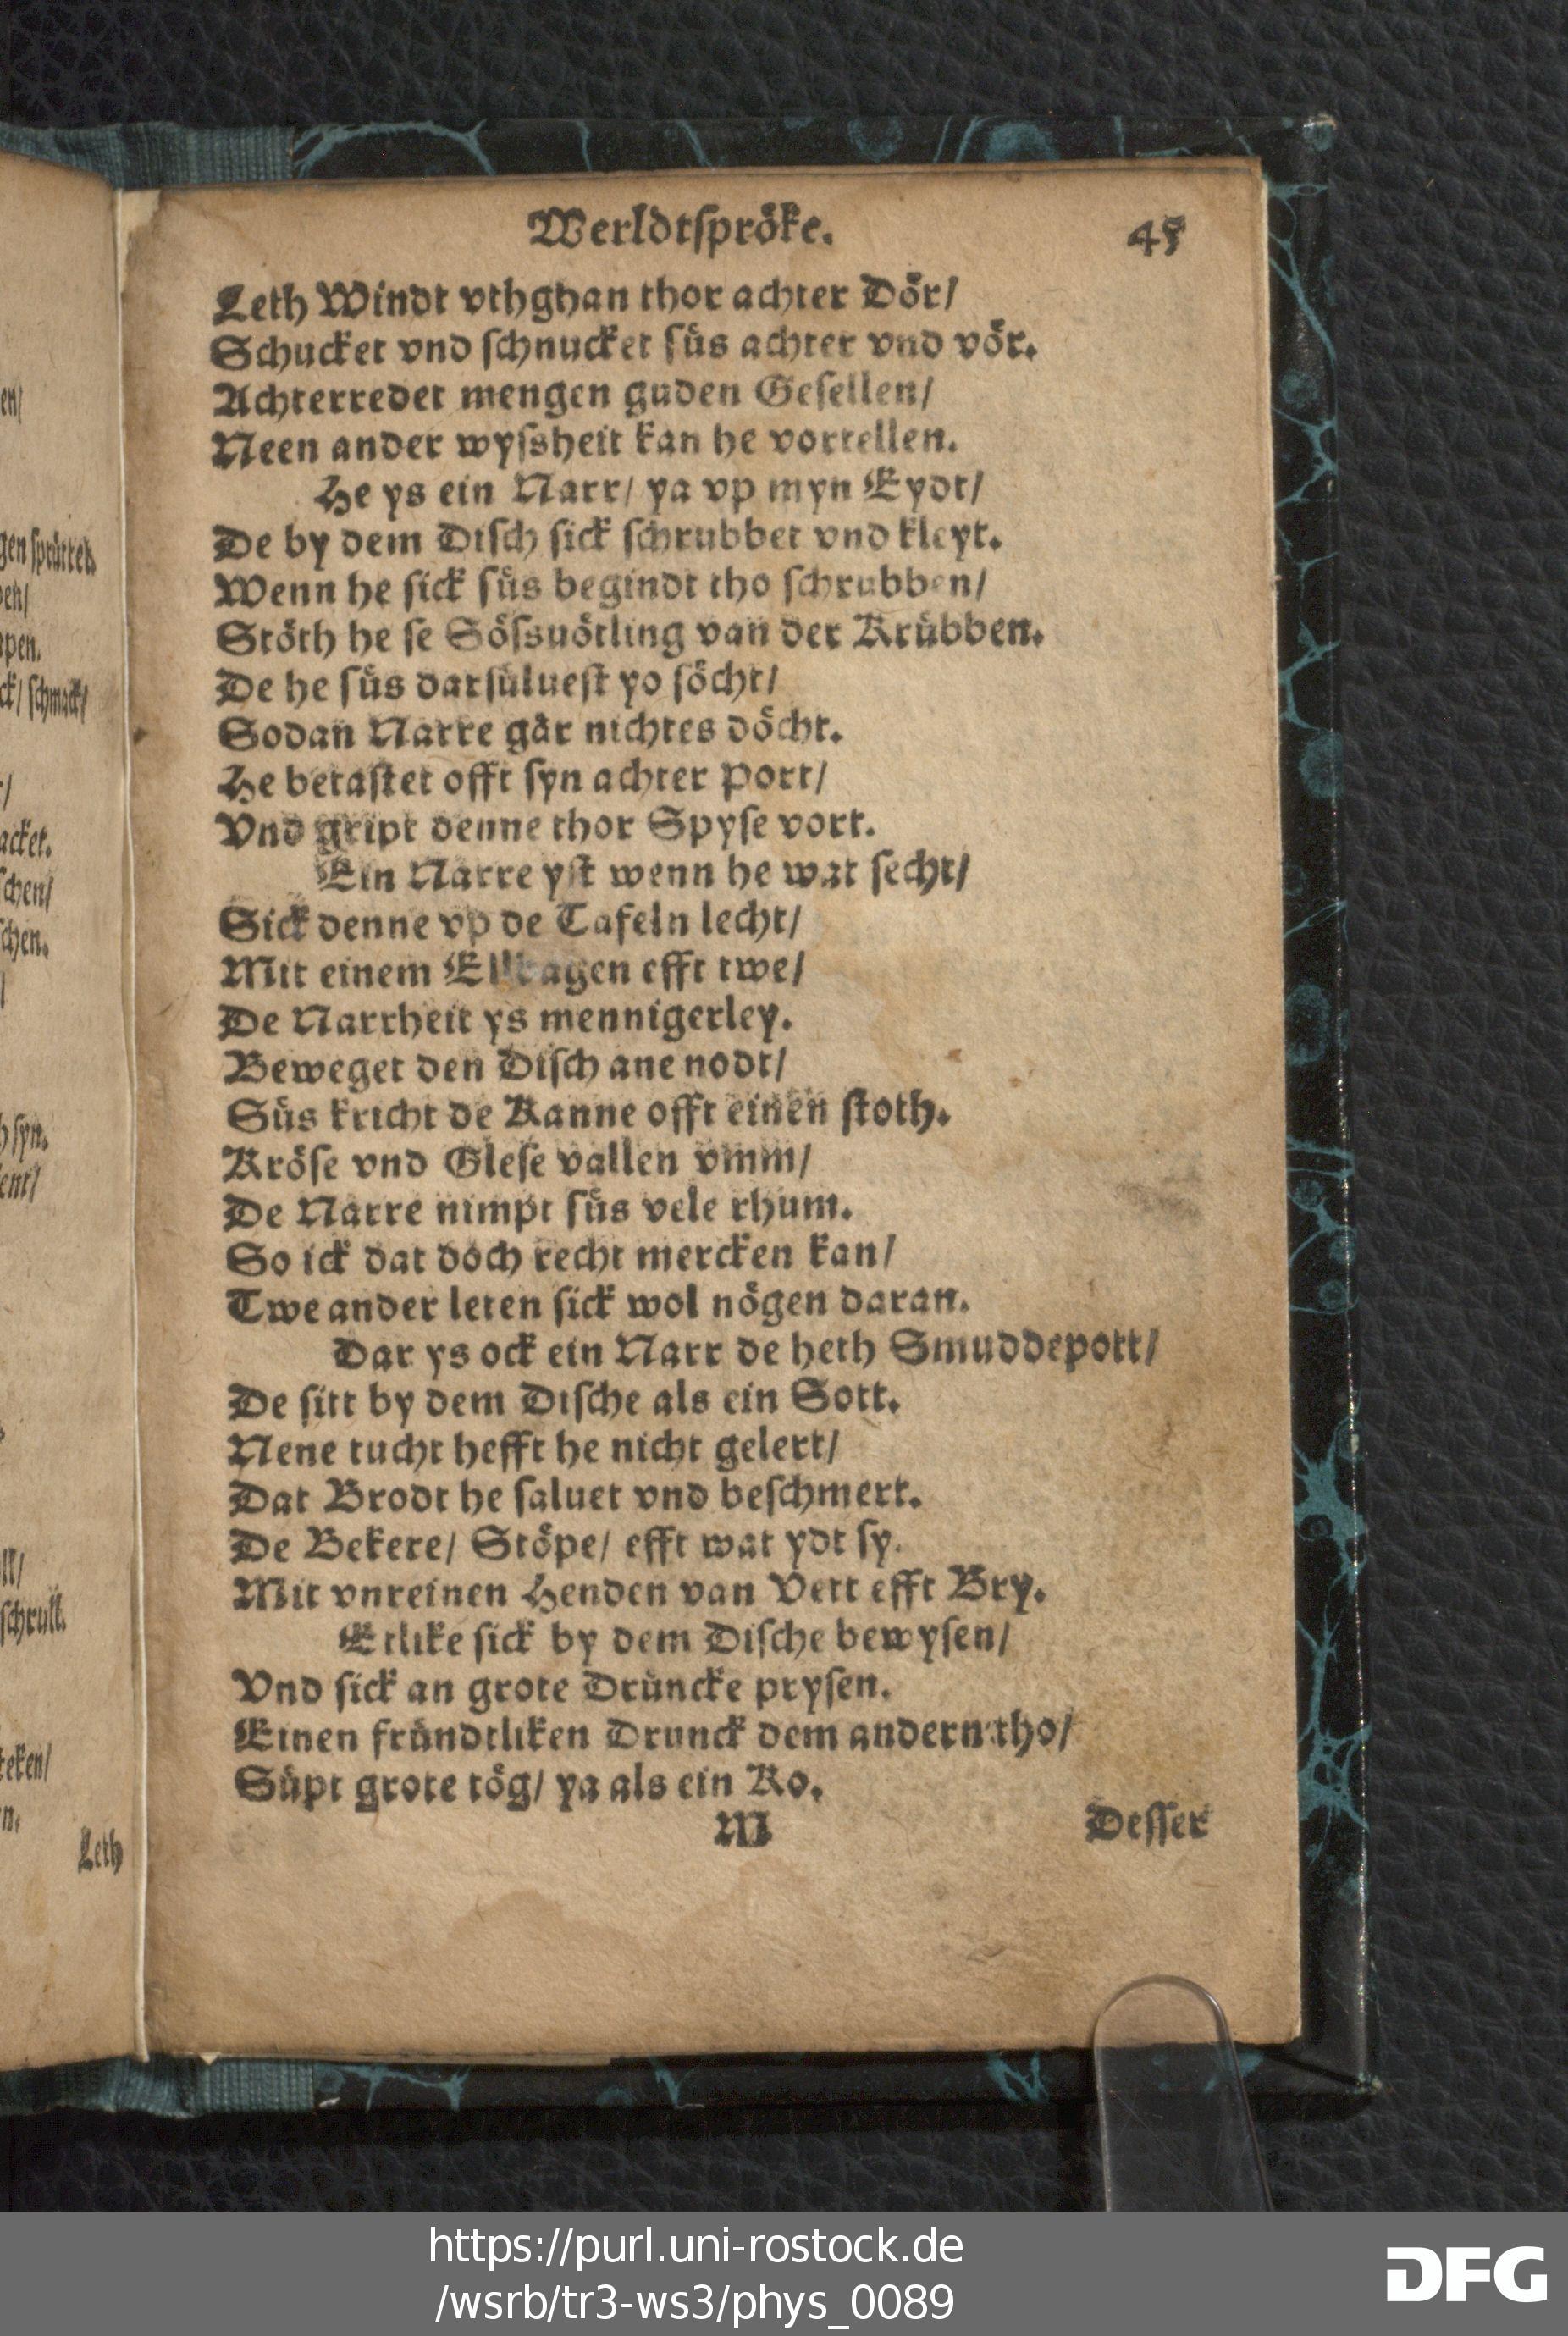 Werldtspröke.
45
Leth Windt vthghan thor achter Dör/
Schucket vnd schnucket süs achter vnd vör.
Achterredet mengen guden Gesellen/
Neen ander wyssheit kan he vortellen.
He ys ein Narr/ ya vp myn Eydt/
De by dem Disch sick schrubbet vnd kleyt.
Wenn he sick süs begindt tho schrubben/
Stöth he se Sössuötling van der Krübben.
De he süs darsüluest yo söcht/
Sodan Narre gär nichtes döcht.
He betastet offt syn achter Port/
Vnd gript denne thor Spyse vort.
Ein Narre yst wenn he wat secht/
Sick denne vp de Tafeln lecht/
Mit einem Ellbagen efft twe/
De Narrheit ys mennigerley.
Beweget den Disch ane nodt/
Süs kricht de Kanne offt einen stoth.
Kröse vnd Glese vallen vmm/
De Narre nimpt süs vele rhum.
So ick dat doch recht mercken kan/
Twe ander leten sick wol nögen daran.
Dar ys ock ein Narr de heth Smuddepott/
De sitt by dem Dische als ein Sott.
Nene tucht hefft he nicht gelert/
Dat Brodt he saluet vnd beschmert.
De Bekere/ Stöpe/ efft wat ydt sy.
Mit vnreinen Henden van Vett efft Bry.
Etlike sick by dem Dische bewysen/
Vnd sick an grote Drüncke prysen.
Einen fründtliken Drunck dem andern tho/
Süpt grote tög/ ya als ein Ko.
M
Desser
en/
gen sprüttet.
pen.
ck/ schmack/
acket.
schen/
schen.
h syn.
ent/
ll/
schrult.
teken/
n.
Leth
https://purl.uni-rostock.de
/wsrb/tr3-ws3/phys_0089
DFG